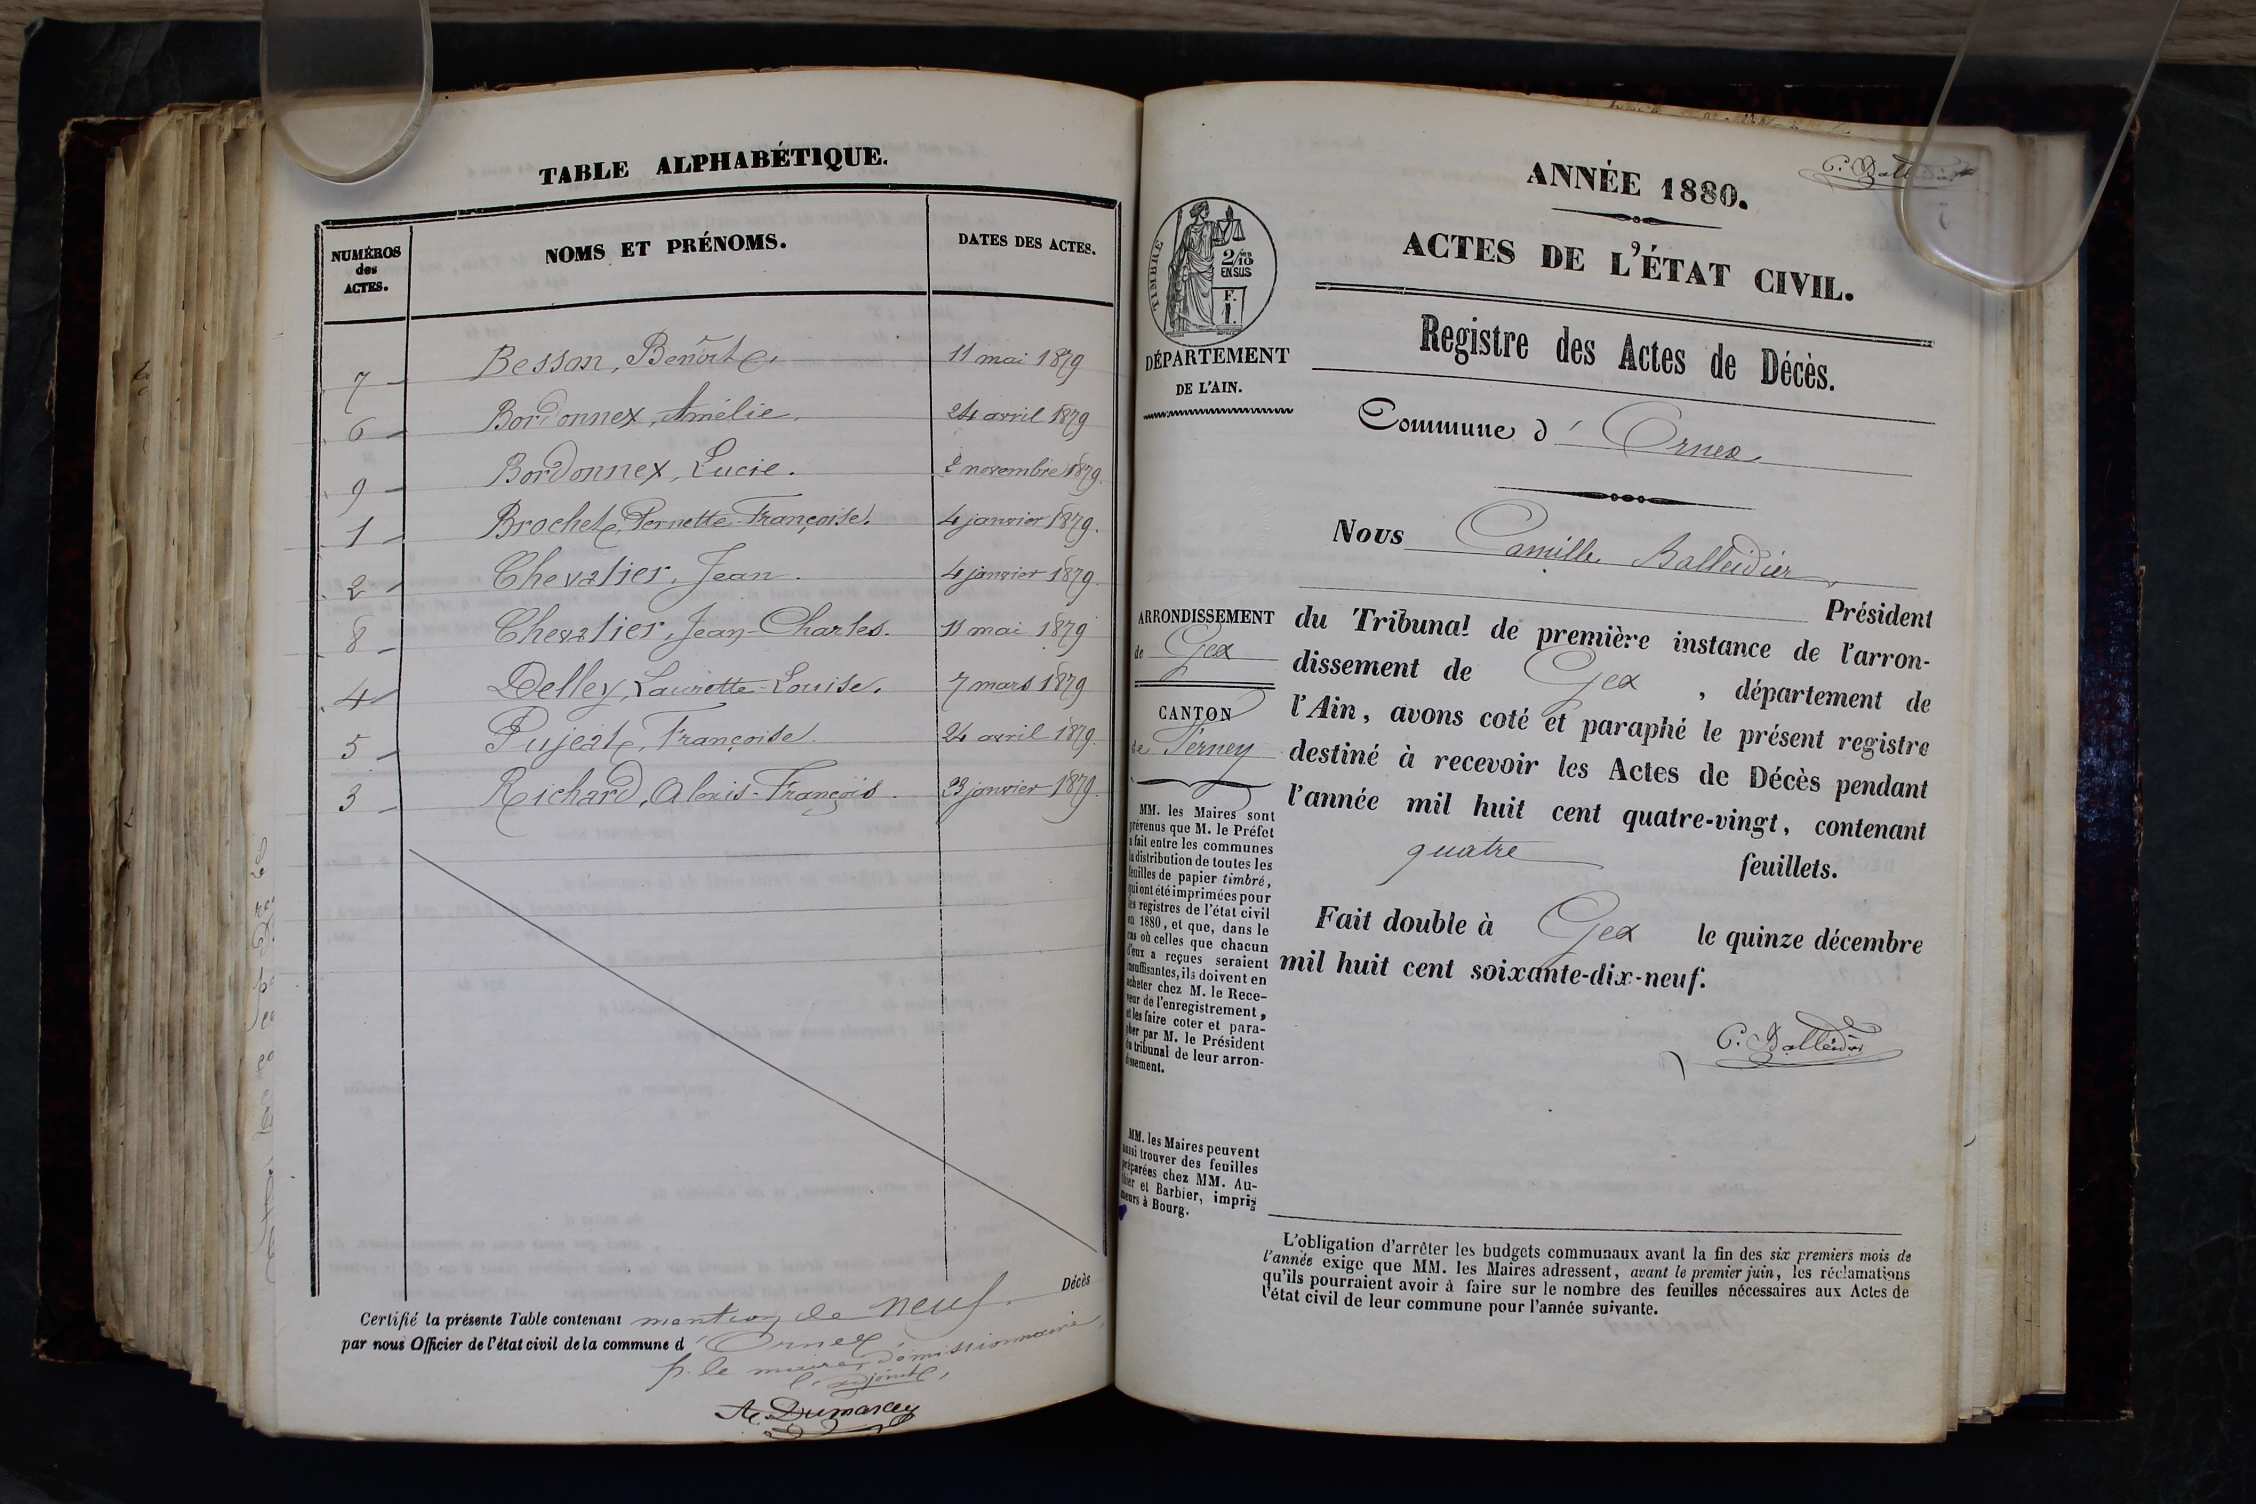 TABLE ALPHABÉTIQUE.
NUMÉROS des ACTES. NOMS ET PRÉNOMS. DATES DES ACTES.
7 Besson, Benoit 11 mai 1879
6 Bordonnex, Amélie. 24 avril 1879
9 Bordonnex, Lucie. 2 novembre 1879.
1 Brochet, Pernette-Françoise. 4 janvier 1879.
2 Chevalier, Jean. 4 janvier 1879.
8 Chevalier, Jean-Charles. 11 mai 1879
4 Delley, Laurette-Louise. 7 mars 1879
5 Pujeat, Françoise. 24 avril 1879.
3 Richard, Alexis-François. 23 janvier 1879.
Certifié la présente Table contenant mention de neuf. Décès
par nous Officier de l'état civil de la commune d'Ornex
p. le maire démissionnaire,
l'adjoint,
A. Dumarcey
ANNÉE 1880.
ACTES DE L'ÉTAT CIVIL.
TIMBRE
2/10 EN SUS
F. 1.
DÉPARTEMENT
DE L'AIN.
Registre des Actes de Décès.
Commune d'Ornex
Nous Camille Balleidier,
Président
ARRONDISSEMENT
de Gex
CANTON
de Ferney
du Tribunal de première instance de l'arron-
dissement de Gex, département de
l'Ain, avons coté et paraphé le présent registre
destiné à recevoir les Actes de Décès pendant
l'année mil huit cent quatre-vingt, contenant
quatre feuillets.
Fait double à Gex le quinze décembre
mil huit cent soixante-dix-neuf.
C. Balleidier
MM. les Maires sont
prévenus que M. le Préfet
a fait entre les communes
la distribution de toutes les
feuilles de papier timbré,
qui ont été imprimées pour
les registres de l'état civil
en 1880, et que, dans le
cas où celles que chacun
d'eux a reçues seraient
insuffisantes, ils doivent en
acheter chez M. le Rece-
veur de l'enregistrement,
et les faire coter et para-
pher par M. le Président
du tribunal de leur arron-
dissement.
MM. les Maires peuvent
aussi trouver des feuilles
préparées chez MM. Au-
et Barbier, impri-
meurs à Bourg.
L'obligation d'arrêter les budgets communaux avant la fin des six premiers mois de
l'année exige que MM. les Maires adressent, avant le premier juin, les réclamations
qu'ils pourraient avoir à faire sur le nombre des feuilles nécessaires aux Actes de
l'état civil de leur commune pour l'année suivante.